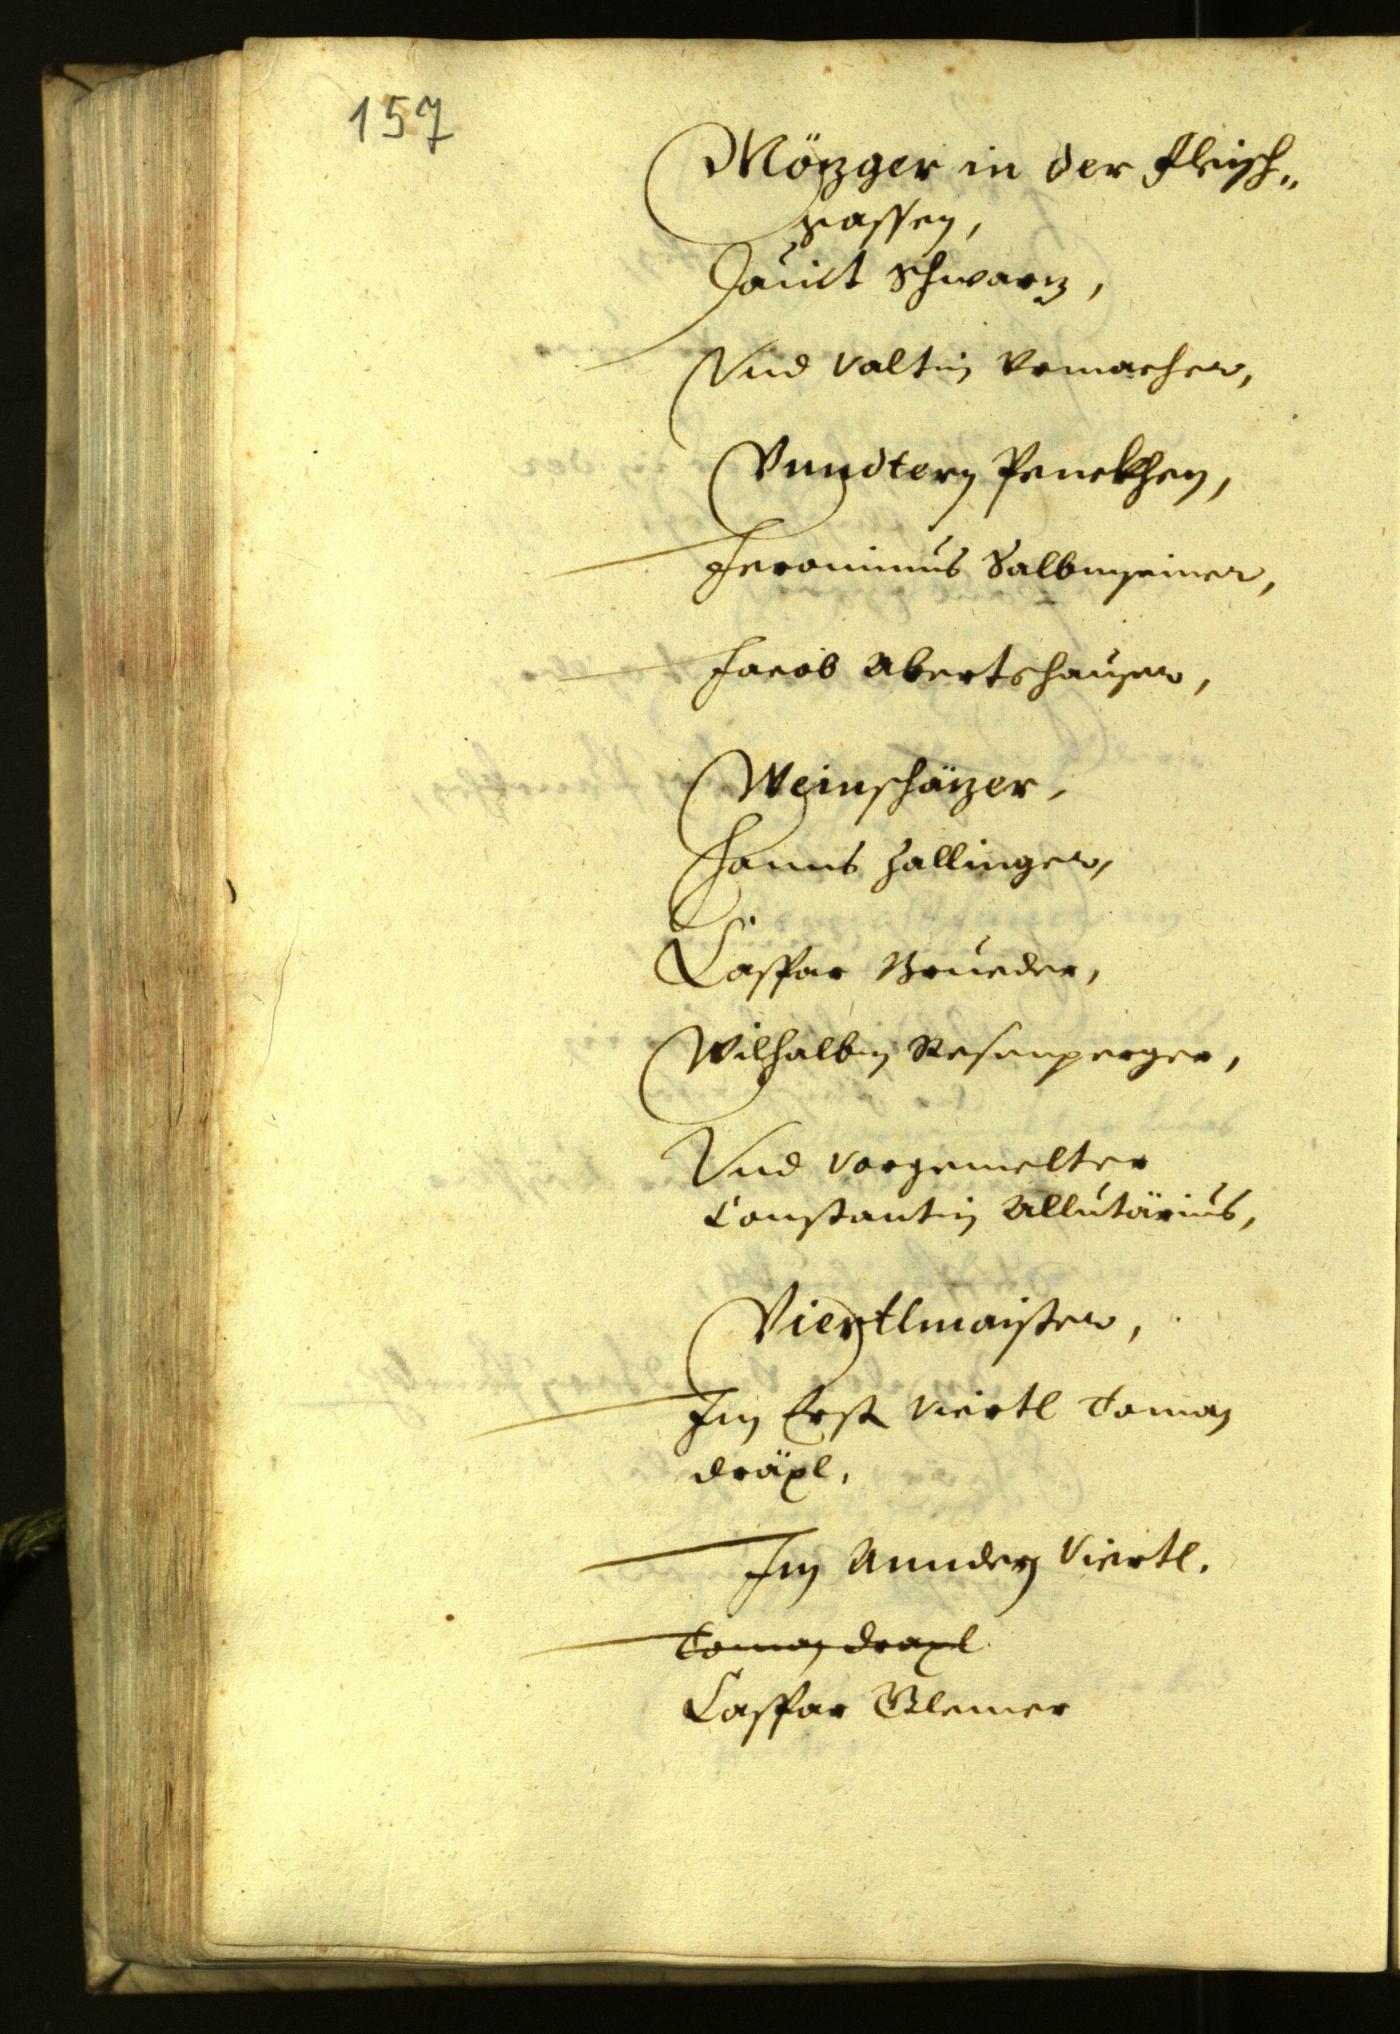 157
Mözger in der Fleisch„
gassen,
Dauict Schwarz,
Vnd Valtin Vrmacher,
Vnndtern Penckhen,
Jeronimus Salbmseiner,
Jacob Abertshauser,
Weinschäzer,
Hanns Zallinger,
Casspar Brueder,
Wilhalbm Rosenperger,
Vnd vorgemelter
Constantin Allutärius,
Viertlmaister,
Im Erst Viertl Toman
dräxl.
Im Anndern Viertl.
Toman draxl
Casspar Clemer